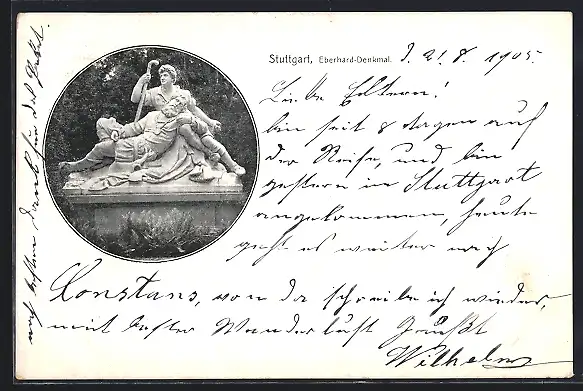 Stuttgart, Eberhard-Denkmal. d. 21. 8. 1905.
Liebe Eltern!
bin seit 8 Tagen auf
der Reise, und bin
gestern in Stuttgart
angekommen, heute
geht es weiter nach
Constans, von da schreibe ich wieder,
mit bester Wanderlust Grüßt
Wilhelm
noch besten Dank für das Paket.